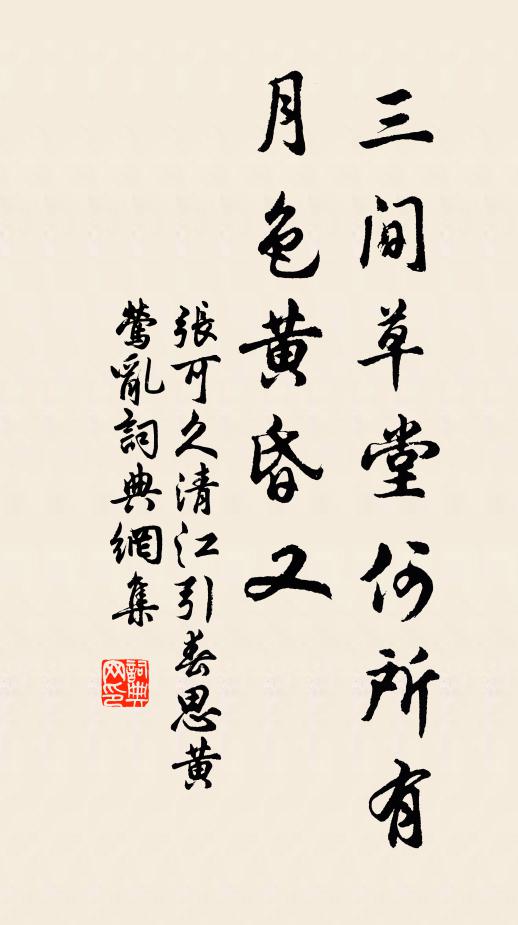 三間草堂何所有
月色黃昏又
張可久清江引春思黃
鶯亂詞典網集
詞典网印